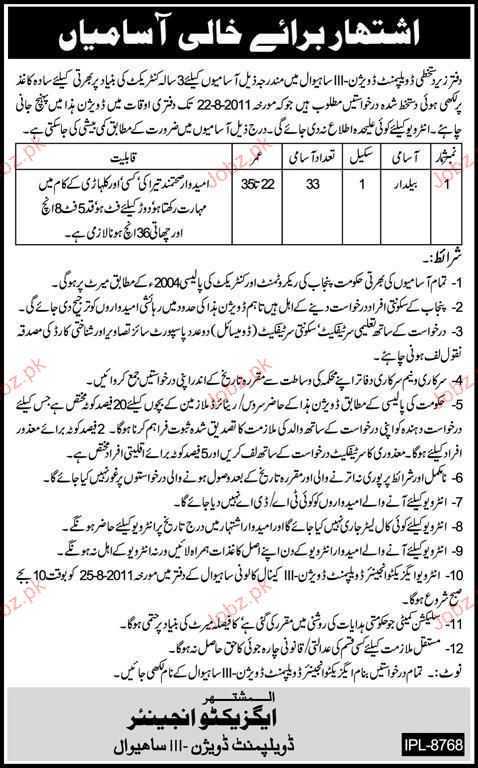 اشتہار برائے خالی آسامیاں
دفتر زیر دستخطی ڈویلپمنٹ ڈویژن-III ساہیوال میں مندرجہ ذیل آسامیوں کیلئے 3 سالہ کنٹریکٹ کی بنیاد پر بھرتی کیلئے سادہ کاغذ
پر لکھی ہوئی دستخط شدہ درخواستیں مطلوب ہیں جو کہ مورخہ 22-8-2011 تک دفتری اوقات میں ڈویژن ہذا میں پہنچ جانی
چاہئے۔ انٹرویو کیلئے کوئی علیحدہ اطلاع نہ دی جائے گی۔ درج ذیل آسامیوں میں ضرورت کے مطابق کمی بیشی کی جا سکتی ہے۔
نمبر شمار آسامی سکیل تعداد آسامی عمر قابلیت
1 بیلدار 1 33 22 تا 35 امیدوار صحتمند تیرا کی' کسی' اور کلہاڑی کے کام میں
مہارت رکھتا ہو دوڑ کیلئے فٹ ہو قد 5 فٹ 8 انچ
اور چھاتی 36 انچ ہونا لازمی ہے۔
شرائط:۔
1- تمام آسامیوں کی بھرتی حکومت پنجاب کی ریکروٹمنٹ اور کنٹریکٹ کی پالیسی 2004ء کے مطابق میرٹ پر ہوگی۔
2- پنجاب کے سکونتی افراد درخواست دینے کے اہل ہیں تاہم ڈویژن ہذا کی حدود میں رہائشی امیدواروں کو ترجیح دی جائے گی۔
3- درخواست کے ساتھ تعلیمی سرٹیفکیٹ' سکونتی سرٹیفکیٹ (ڈومیسائل) دو عدد پاسپورٹ سائز تصاویر اور شناختی کارڈ کی مصدقہ
نقول لف ہونی چاہئے۔
4- سرکاری و نیم سرکاری دفاتر اپنے محکمہ کی وساطت سے مقررہ تاریخ کے اندر اپنی درخواستیں جمع کروائیں۔
5- حکومت کی پالیسی کے مطابق ڈویژن ہذا کے حاضر سروس/ریٹائرڈ ملازمین کے بچوں کیلئے 20 فیصد کوٹہ مختص ہے جس کیلئے
درخواست دہندہ کو اپنی درخواست کے ساتھ والد کی ملازمت کا تصدیق شدہ ثبوت فراہم کرنا ہوگا۔ 2 فیصد کوٹہ برائے معذور
افراد کیلئے ہوگا۔ معذوری کا سرٹیفکیٹ درخواست کے ساتھ لف کریں اور 5 فیصد کوٹہ برائے اقلیتی افراد مختص ہے۔
6- نامکمل اور شرائط پر پوری نہ اترنے والی و مقررہ تاریخ کے بعد وصول ہونے والی درخواستوں پر غور نہیں کیا جائے گا۔
7- انٹرویو کیلئے آنے والے امیدواروں کو کوئی ٹی اے/ڈی اے نہیں دیا جائے گا۔
8- انٹرویو کیلئے کوئی کال لیٹر جاری نہیں کیا جائے گا اور امیدوار اشتہار میں درج تاریخ پر انٹرویو کیلئے حاضر ہونگے۔
9- انٹرویو کیلئے آنے والے امیدوار انٹرویو کے دن اپنے اصل کاغذات ہمراہ لائیں ورنہ انٹرویو کے اہل نہ ہونگے۔
10- انٹرویو ایگزیکٹو انجینئر ڈویلپمنٹ ڈویژن-III کینال کالونی ساہیوال کے دفتر میں مورخہ 25-8-2011 کو بوقت 10 بجے
صبح شروع ہوگا۔
11- سلیکشن کمیٹی جو حکومتی ہدایات کی روشنی میں مقرر کی گئی ہے' کا فیصلہ میرٹ کی بنیاد پر حتمی ہوگا۔
12- مستقل ملازمت کیلئے کسی قسم کی عدالتی/قانونی چارہ جوئی کا حق حاصل نہ ہوگا۔
نوٹ:۔ تمام درخواستیں بنام ایگزیکٹو انجینئر ڈویلپمنٹ ڈویژن-III ساہیوال کے نام لکھی جائیں۔
المشتہر
ایگزیکٹو انجینئر
ڈویلپمنٹ ڈویژن-III ساہیوال
IPL-8768
Jobz.pk